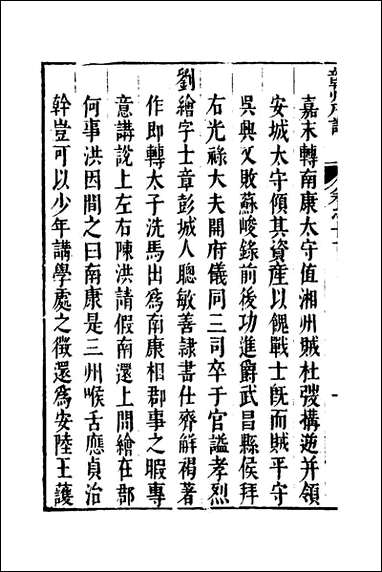 嘉末轉南康太守值湘州賊杜弢構逆并領
安城太守傾其資產以餽戰士旣而賊平守
吳興又敗蘇峻錄前後功進爵武昌縣侯拜
右光祿大夫開府儀同三司卒于官諡孝烈
劉繪字士章彭城人聰敏善隷書仕齊解褐著
作即轉太子洗馬出爲南康相郡事之暇專
意講說上左右陳洪請假南還上問繪在郡
何事洪因間之曰南康是三州喉舌應貞治
幹豈可以少年講學處之徵還爲安陸王護